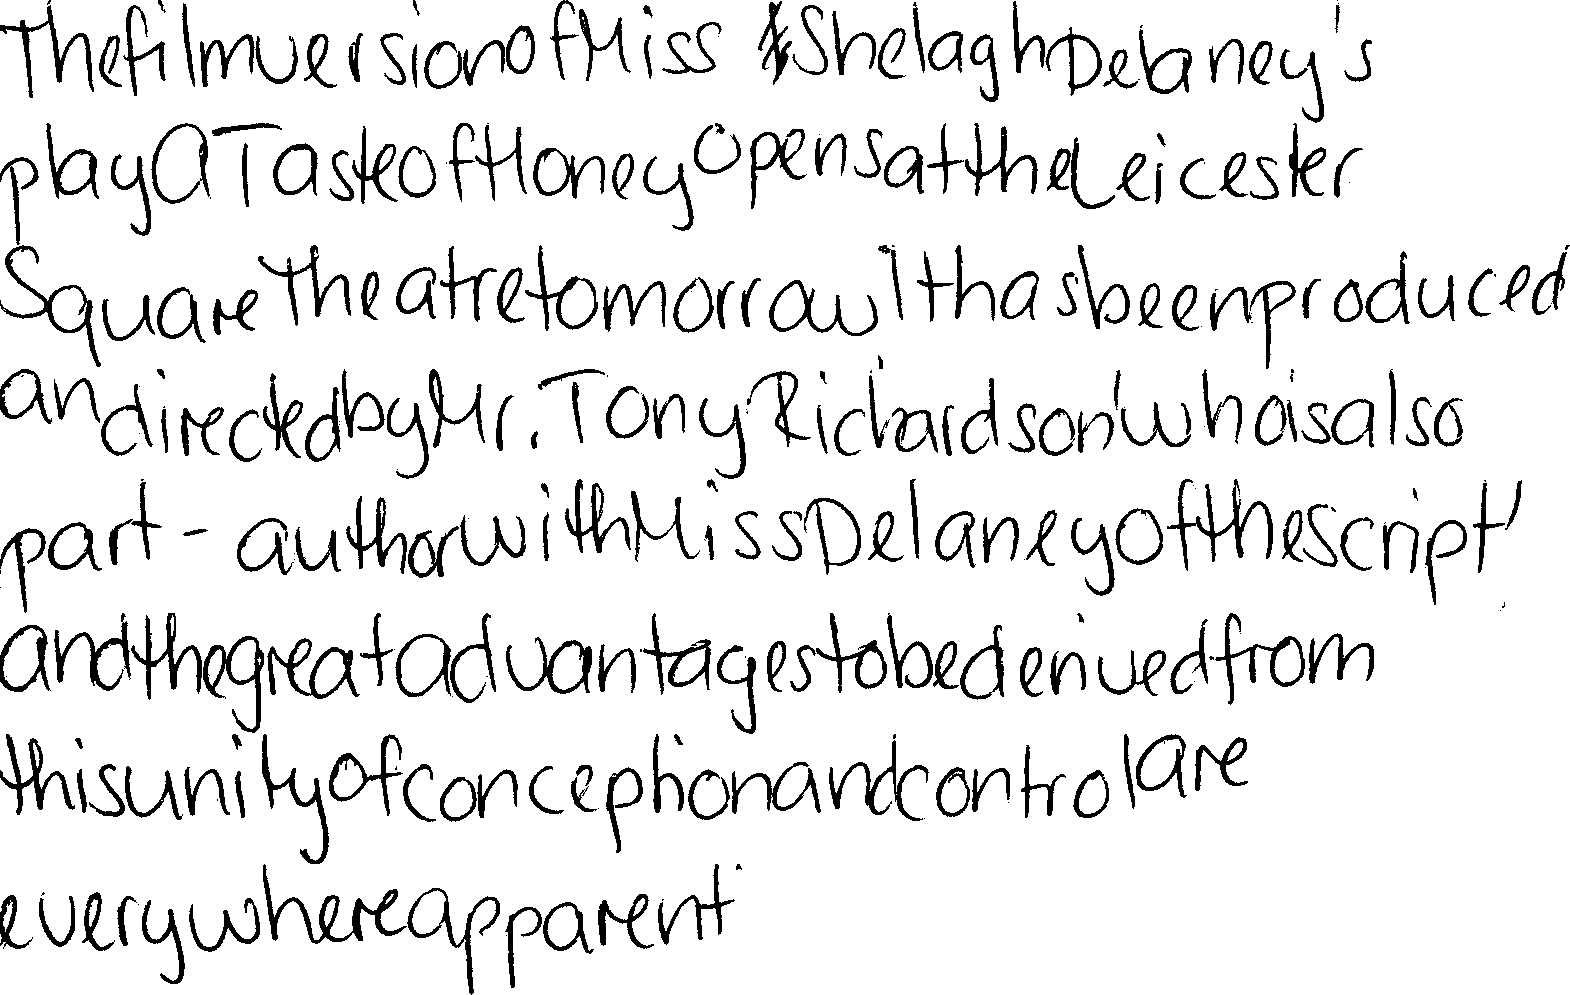 The film version of Miss Shelagh Delaney's
play A Taste of Honey opens at the Leicester
Square Theatre tomorrow. It has been produced
and directed by Mr. Tony Richardson, who is also
part-author with Miss Delaney of the script,
and the great advantages to be derived from
this unity of conception and control are
everywhere apparent.